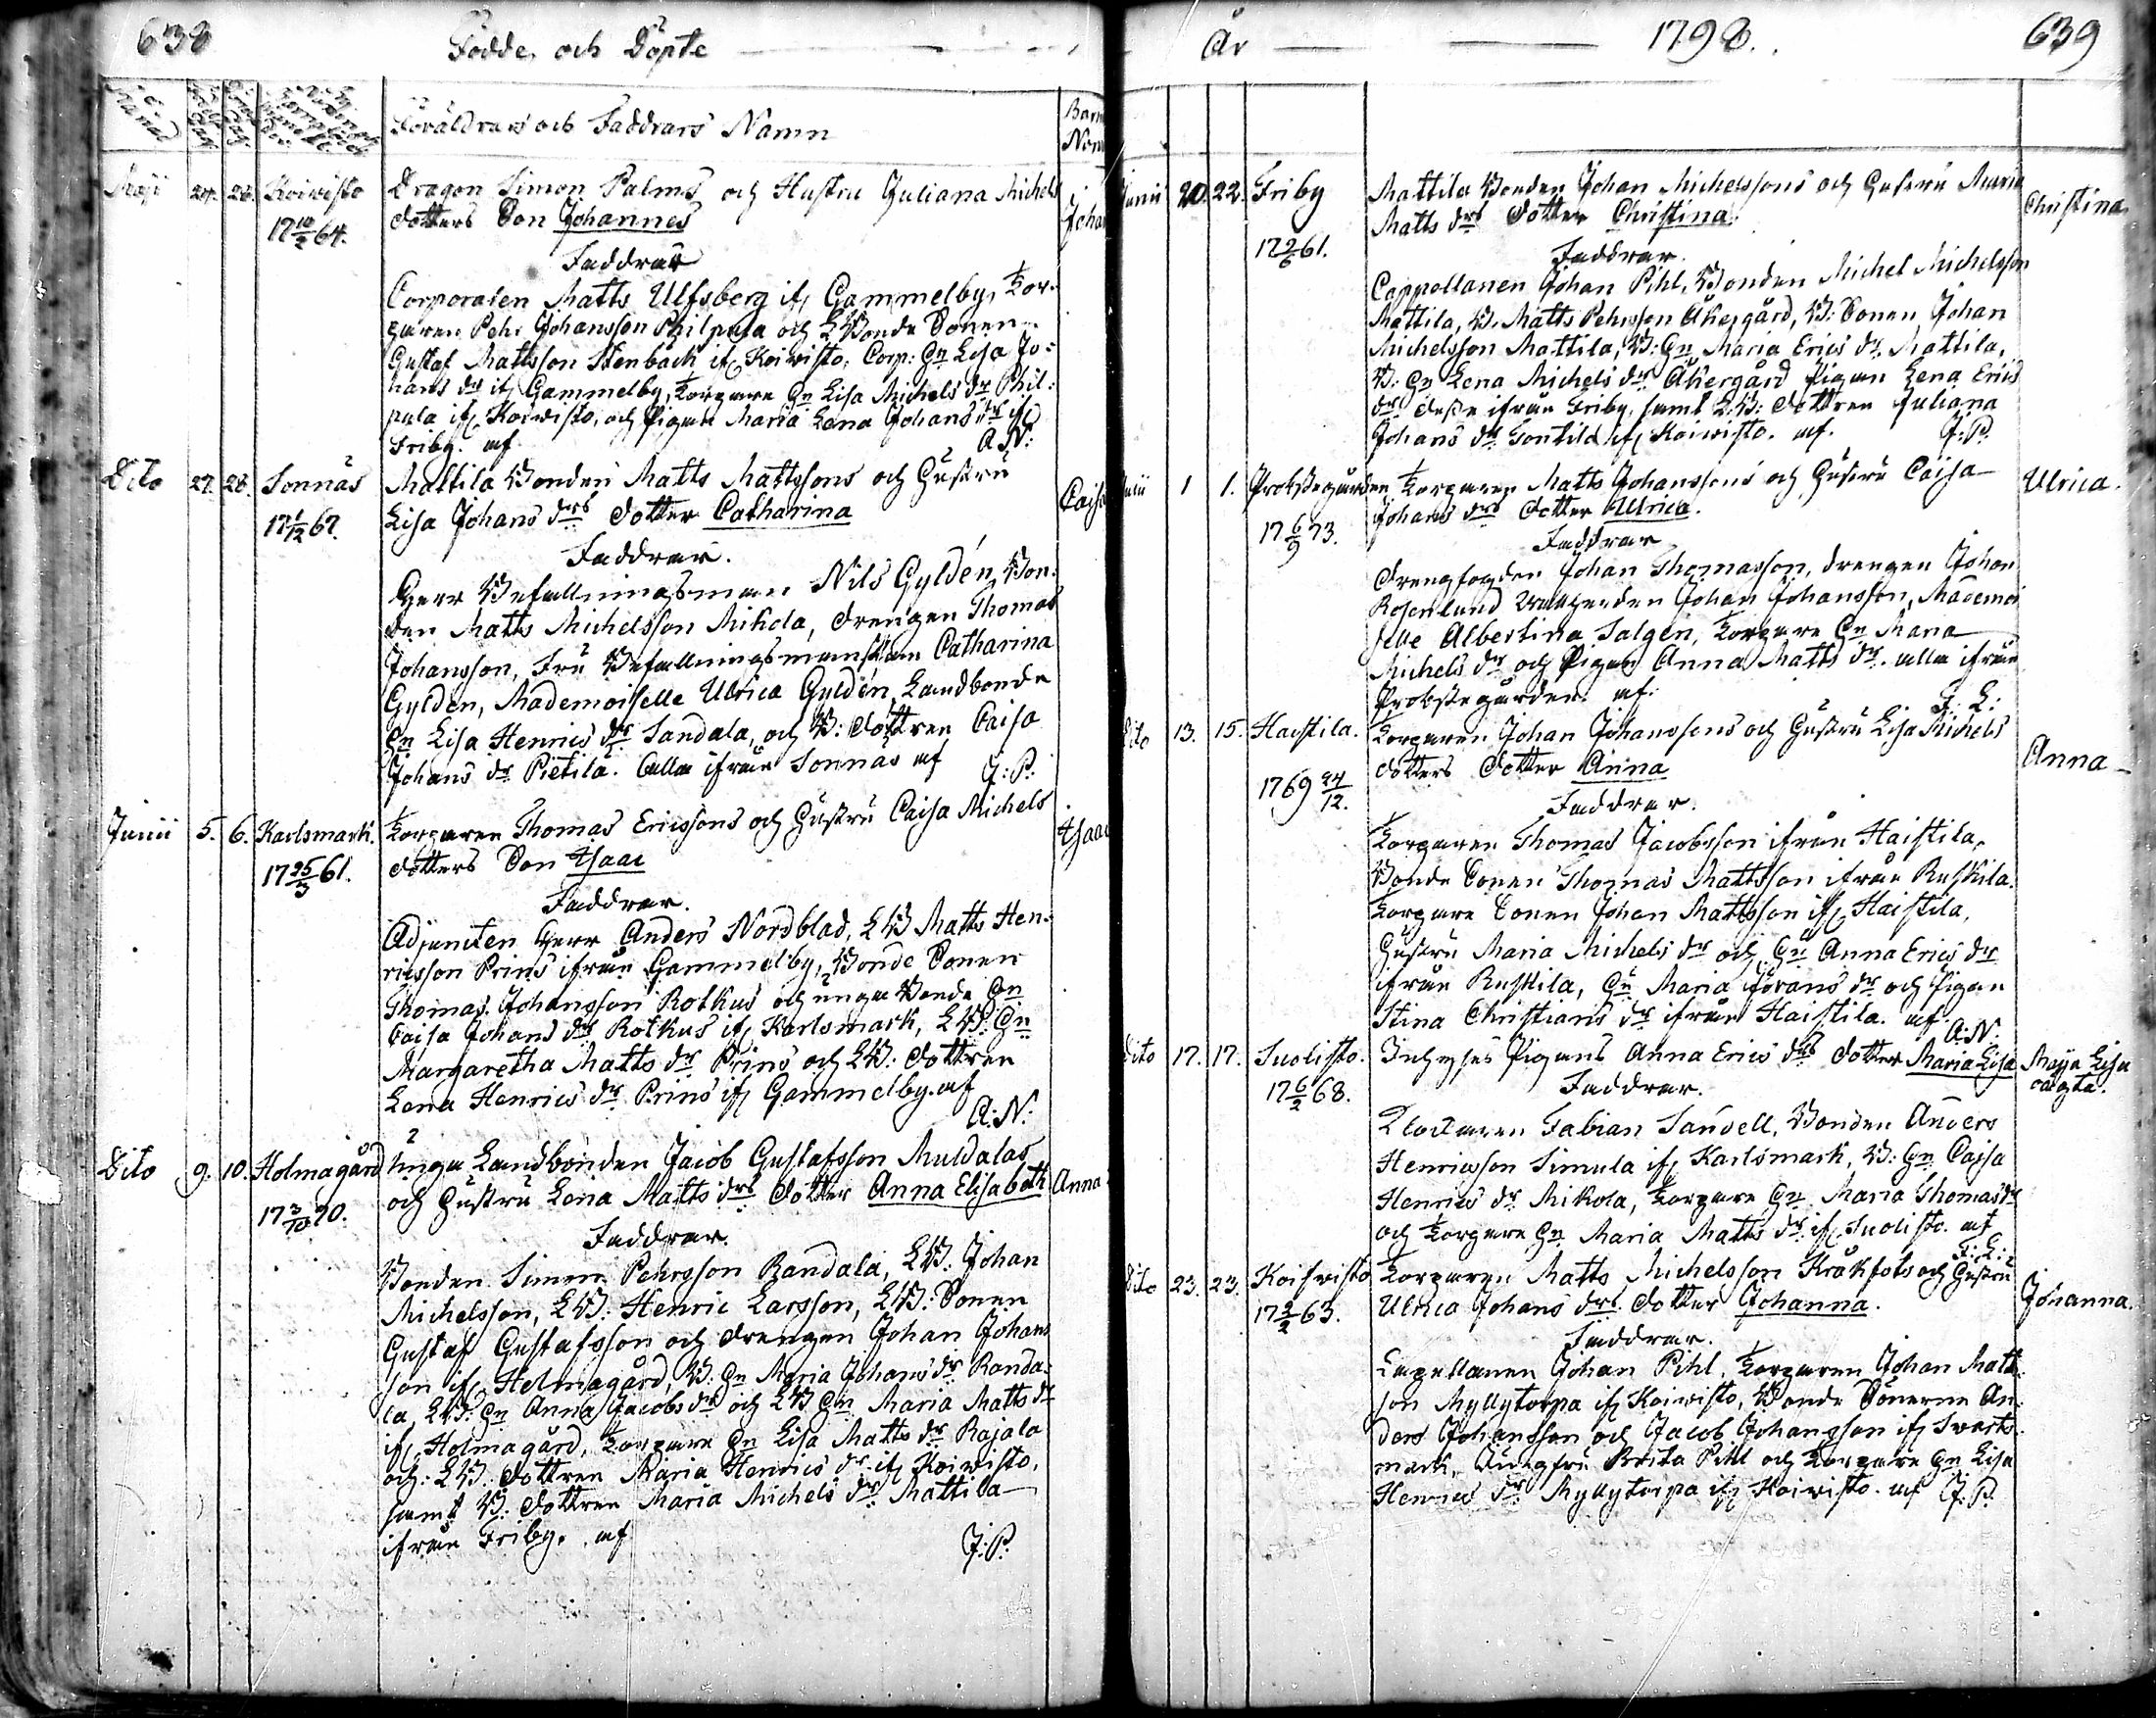 638
Födde och Döpte
Föräldrars och Faddrars Namn
Barn
Maji 27. 28. Koivisto Dragon Simon Palms och Hustru Juliana Michels
17 10/2 64. dotters Son Johannes
Faddrar
Corporalen Matts Ulfsberg if. Gammelby, Tor-
paren Pehr Johansson Philpula och LBonde Sonen
Gustaf Mattsson Stenbäck if. Koivisto, Corp: Hu Lisa Jo-
hans dr if. Gammelby, Torpare Hu Lisa Michels dr Phil-
pula if. Koivisto, och Pigan Maria Lena Johans dr if.
Friby. af A: N:
Dito 27. 28. Sonnäs Mattila Bonden Matts Mattssons och Hustru Caisa
17 1/12 67. Lisa Johans drs dotter Catharina
Faddrar.
Herr Befallningsman Nils Gyldén, Bon-
den Matts Michelsson Mikola, drengen Thomas
Johansson, Fru Befallningsmanskan Catharina
Gyldén, Mademoiselle Ulrica Gyldén, Landbonde
Hu Lisa Henrics dr Sandala, och B: dottren Caisa
Johans dr Pietilä. alla ifrån Sonnäs af J: P:
Junii 5. 6. Karlsmark. Torparen Thomas Ericssons och Hustru Caisa Michels Isaac
17 25/3 61. dotters Son Isaac
Faddrar.
Adjuncten Herr Anders Nordblad, LB Matts Hen-
ricsson Prins ifrån Gammelby, Bonde Sonen
Thomas Johansson Rotkus och unga Bonde Hu
Caisa Johans dr Rotkus if. Karlsmark, LB: Hu
Margaretha Matts dr Prins och LB: dottren
Lena Henrics dr Prins if. Gammelby. af
A: N:
Dito 9. 10. Holmagård unga Landbonden Jacob Gustafsson Muldalas
17 3/10 70. och Hustru Lena Matts drs dotter Anna Elisabeth Anna
Faddrar.
Bonden Simon Pehrsson Randala, LB: Johan
Michelsson, LB: Henric Larsson, LB: Sonen
Gustaf Gustafsson och drengen Johan Johans
son if. Holmagård, B: Hu Maria Johans dr Randa-
la, LB: Hu Anna Jacobs dr och LB Hu Maria Matts dr
if. Holmagård, Torpare Hu Lisa Matts dr Rajala
och LB: dottren Maria Henrics dr if. Koivisto,
samt B: dottren Maria Michels dr Mattila
ifrån Friby. af J: P:
År 1798. 639
Junii 20. 22. Friby Mattila Bonden Johan Michelssons och Hustru Maria Christina
17 2/6 61. Matts drs dotter Christina.
Faddrar.
Cappellanen Johan Pihl, Bonden Michel Michelsson
Mattila, B. Matts Pehrsson Åkergård, B: Sonen Johan
Michelsson Mattila, B: Hu Maria Erics dr Mattila,
B: Hu Lena Michels dr Åkergård Pigan Lena Erics
dr desse ifrån Friby, samt LB: dottren Juliana
Johans dr Gontila if. Koivisto. af. J: P.
1 1. Probstegården Torparen Matts Johanssons och Hustru Caisa Ulrica.
17 6/9 73. Johans drs dotter Ulrica.
Faddrar
Drengfogden Johan Thomasson, drengen Johan
Rosenlund Johan Johansson, Mademoi
selle Albertina Salgén, Torpare Hu Maria
Michels dr och Pigan Anna Matts dr. alla ifrån
Probstegården. af. F: L:
Dito 13. 15. Haistila. Torparen Johan Johanssons och Hustru Lisa Michels
1769 24/12. dotters dotter Anna Anna
Faddrar.
Torparen Thomas Jacobsson ifrån Haistila,
Bonde Sonen Thomas Mattsson ifrån Ruskila.
Torpare Sonen Johan Mattsson if. Haistila,
Hustru Maria Michels dr och Hu Anna Erics dr
ifrån Ruskila, Hu Maria Görans dr och Pigan
Stina Christians dr ifrån Haistila. af.
A: N.
Dito 17. 17. Suolisto. Inhyses Pigans Anna Erics drs dotter Maria Lisa Maja Lisa
17 6/2 68. Faddrar. oägta.
Klockaren Fabian Sandell, Bonden Anders
Henricsson Simula if. Karlsmark, B: Hu Caisa
Henrics dr Mikola, Torpare Hu Maria Thomas dr
och Torpare Hu Maria Matts dr if. Suolisto. af
F: L:
Dito 23. 23. Koiswisto Torparen Matts Michelsson Kråkfots och Hustru
17 2/2 63. Ulrica Johans drs dotter Johanna. Johanna.
Faddrar.
Capellanen Johan Pihl, Torparen Johan Matts
son Myllytorpa if. Koivisto, Bonde Sönerne An-
ders Johansson och Jacob Johansson if. Swarts
mark, Jungfru Brita Pihl och Torpare Hu Lisa
Henrics dr Myllytorpa if. Koivisto. af J: P.